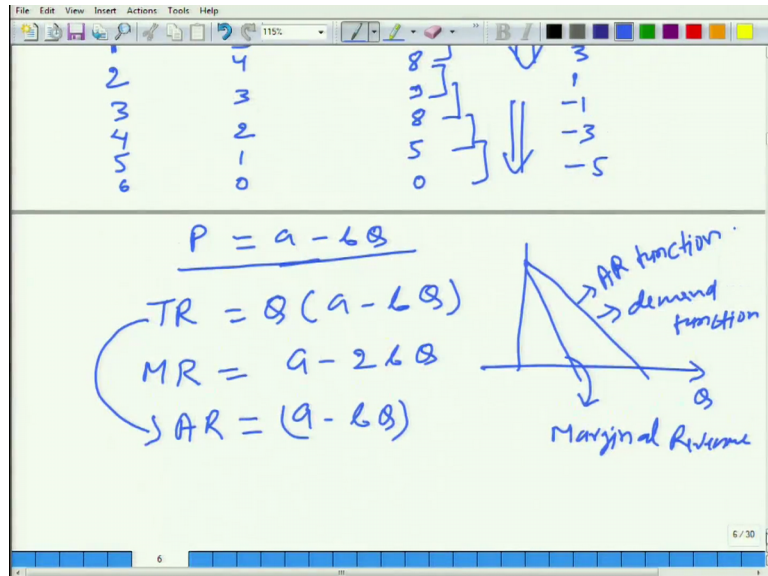 File Edit View Insert Actions Tools Help
115% B I
4 8 3
2 3 9 1
3 2 8 -1
4 1 5 -3
5 0 0 -5
6
P = a - bQ
TR = Q (a - bQ)
MR = a - 2bQ
AR = (a - bQ)
AR function.
demand
function
Q
Marginal Revenue
6 / 30
6